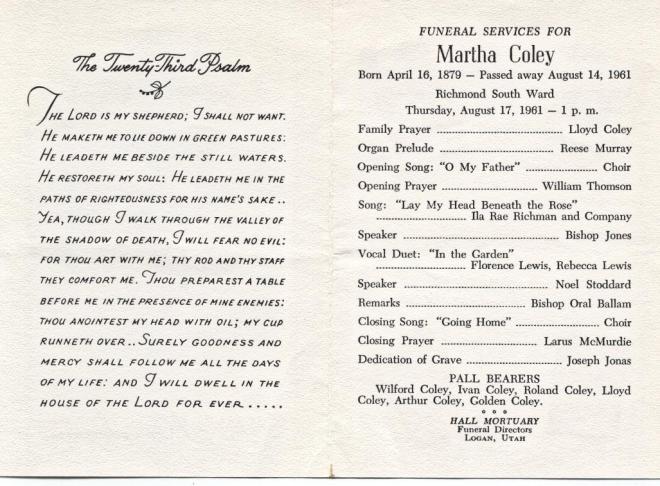 The Twenty-Third Psalm
The Lord is my shepherd; I shall not want.
He maketh me to lie down in green pastures:
He leadeth me beside the still waters.
He restoreth my soul: He leadeth me in the
paths of righteousness for his name's sake..
Yea, though I walk through the valley of
the shadow of death, I will fear no evil:
for thou art with me; thy rod and thy staff
they comfort me. Thou preparest a table
before me in the presence of mine enemies:
thou anointest my head with oil; my cup
runneth over.. Surely goodness and
mercy shall follow me all the days
of my life: and I will dwell in the
house of the Lord for ever.....
FUNERAL SERVICES FOR
Martha Coley
Born April 16, 1879 — Passed away August 14, 1961
Richmond South Ward
Thursday, August 17, 1961 — 1 p. m.
Family Prayer ........ Lloyd Coley
Organ Prelude ........ Reese Murray
Opening Song: "O My Father" ........ Choir
Opening Prayer ........ William Thomson
Song: "Lay My Head Beneath the Rose"
........ Ila Rae Richman and Company
Speaker ........ Bishop Jones
Vocal Duet: "In the Garden"
........ Florence Lewis, Rebecca Lewis
Speaker ........ Noel Stoddard
Remarks ........ Bishop Oral Ballam
Closing Song: "Going Home" ........ Choir
Closing Prayer ........ Larus McMurdie
Dedication of Grave ........ Joseph Jonas
PALL BEARERS
Wilford Coley, Ivan Coley, Roland Coley, Lloyd
Coley, Arthur Coley, Golden Coley.
HALL MORTUARY
Funeral Directors
LOGAN, UTAH